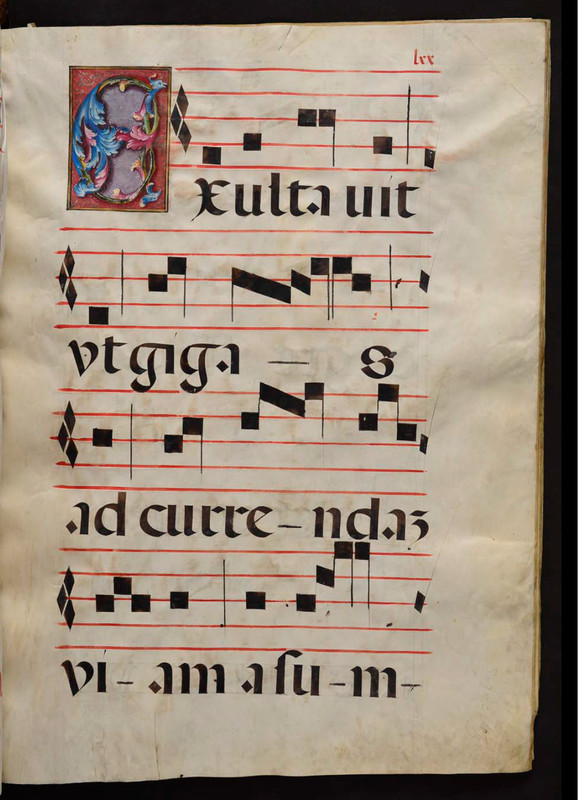 lxx
Exultauit
vt giga — s
ad curre-ndaʒ
vi- am a ſu-m-